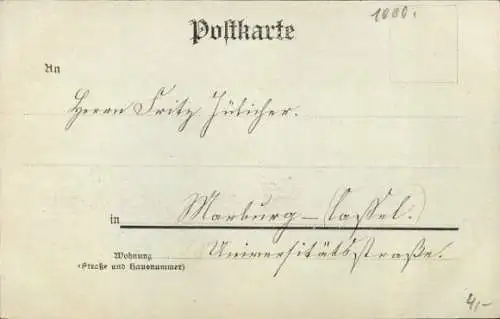 Postkarte
1000.
An
Herrn Fritz Jülicher.
in Marburg – (Cassel.)
Wohnung
(Straße und Hausnummer)
Universitätsstraße.
4,-